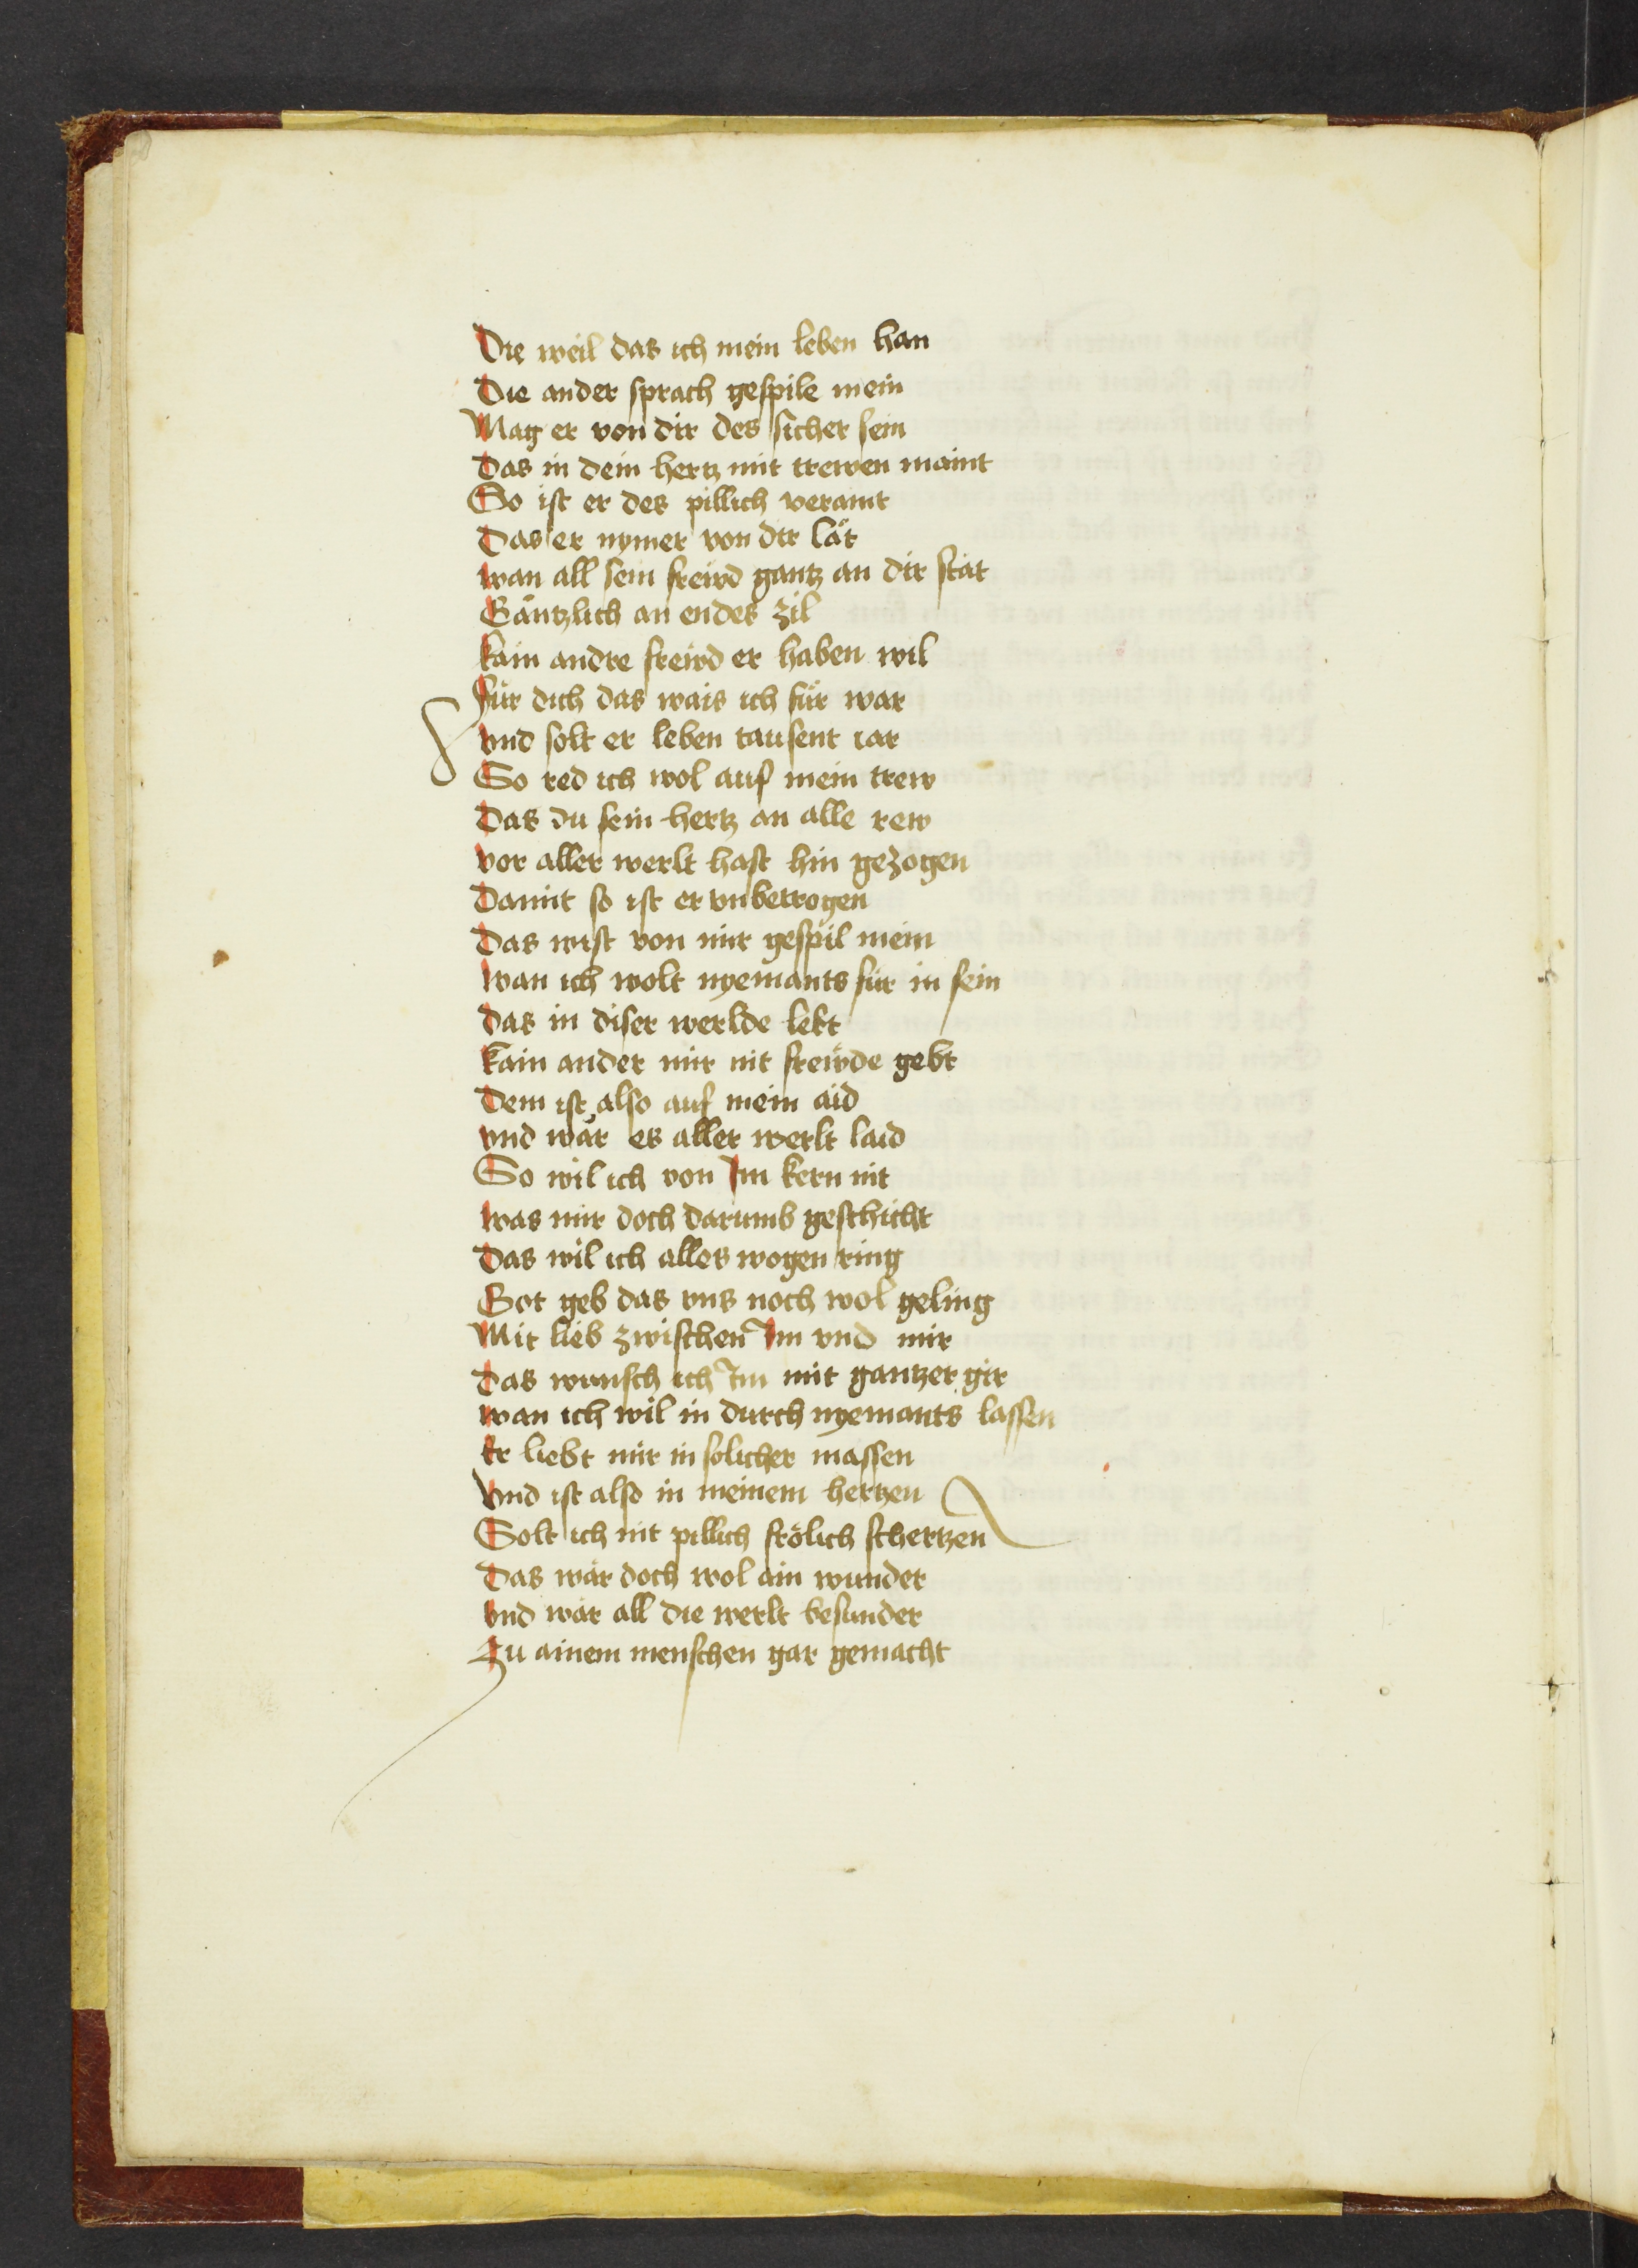 Die weil das ich mein leben han
Die ander sprach gespile mein
Mag er von dir des sicher sein
Das in dein hertz mit trewen maint
So ist er des pillich veraint
Das er nymer von dir lät
wan all sein freẅd gantz an dir stät
Gäntzlich an endes zil
kain andre freẅd er haben wil
für dich das wais ich für war
vnd solt er leben tausent iar
So red ich wol auf mein trew
Das du sein hertz an alle rew
vor aller werlt hast hin gezogen
Damit so ist er vnbetrogen
Das wist von mir gespil mein
wan ich wolt nyemants für in sein
das in diser werlde lebt
kain ander mir nit freẅde gebt
Dem ist also auf mein aid
vnd wär es aller werlt laid
So wil ich von Im kern nit
was mir doch darumb geschicht
Das wil ich alles wogen ring
Got geb das vns noch wol geling
Mit lieb zwischen Im vnd mir
das wunsch ich Im mit gantzer gir
wan ich wil in durch nyemants lassen
Er liebt mir in solicher massen
Vnd ist also in meinem hertzen
Solt ich nit pillich frölich schertzen
Das wär doch wol ain wunder
vnd wär all die werlt besunder
Zu ainem menschen gar gemacht